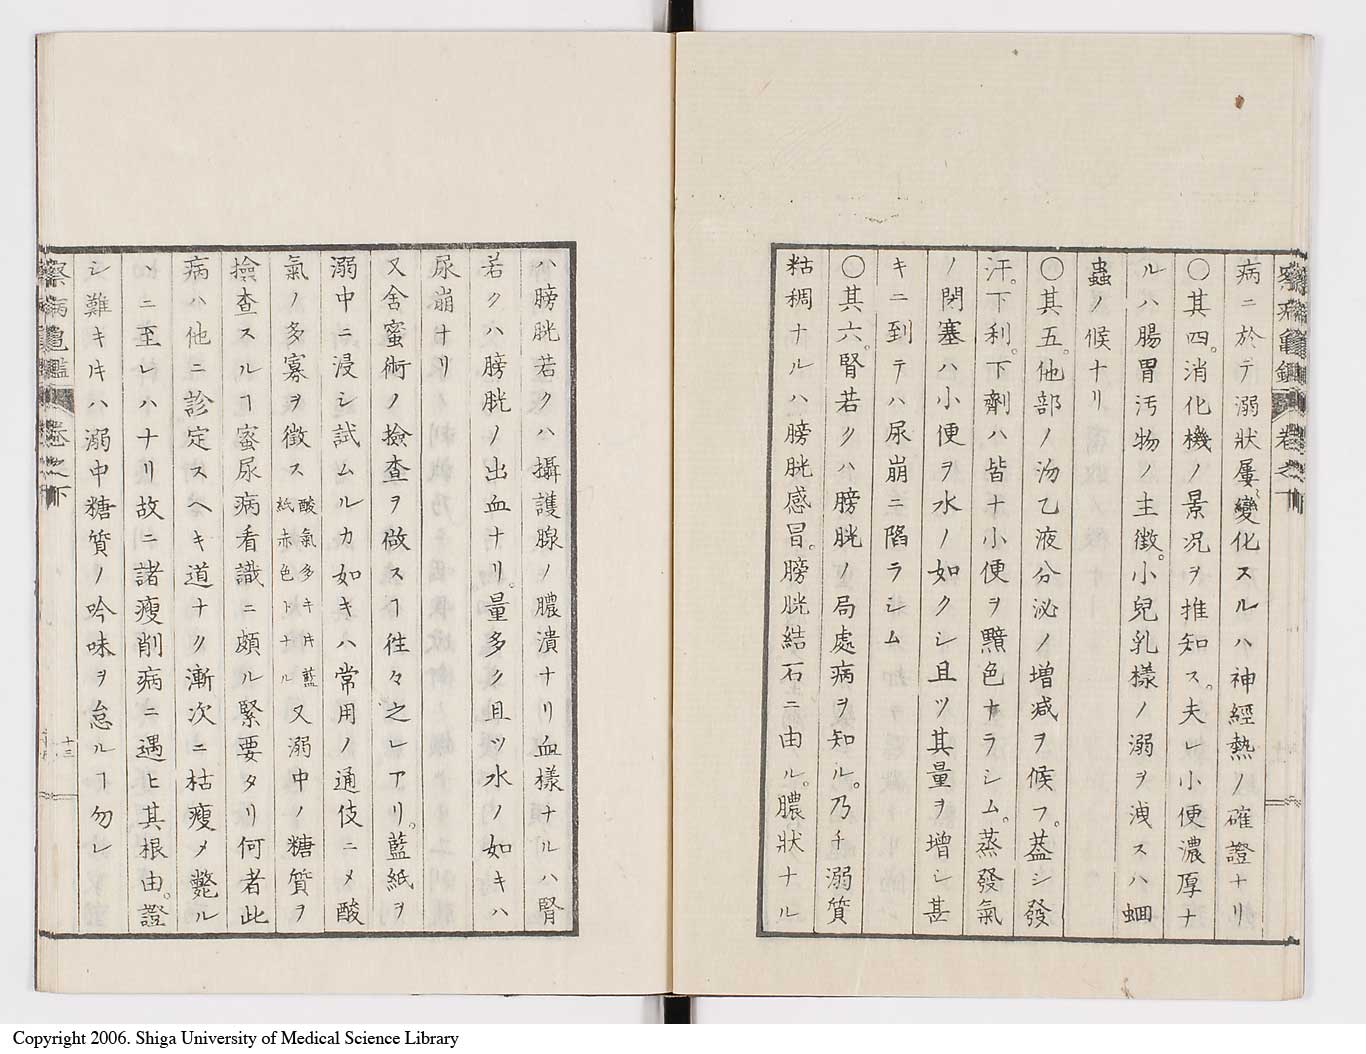 病ニ於テ溺狀屢變化スルハ神經熱ノ確證ナリ
〇其四。消化機ノ景況ヲ推知ス。夫レ小便濃厚ナ
ルハ腸胃汚物ノ主徴。小兒乳樣ノ溺ヲ洩スハ蛔
蟲ノ候ナリ
〇其五。他部ノ沕乙液分泌ノ增減ヲ候フ。蓋シ發
汗。下利。下劑ハ皆ナ小便ヲ黯色ナラシム。蒸發氣
ノ閉塞ハ小便ヲ水ノ如クシ且ツ其量ヲ增シ甚
キニ到テハ尿崩ニ陷ラシム
〇其六。腎若クハ膀胱ノ局處病ヲ知ル。乃チ溺質
粘稠ナルハ膀胱感冒。膀胱結石ニ由ル。膿狀ナル
ハ膀胱若クハ攝護腺ノ膿潰ナリ血樣ナルハ腎
若クハ膀胱ノ出血ナリ。量多ク且ツ水ノ如キハ
尿崩ナリ
又舍蜜術ノ撿查ヲ做スヿ徃々之レアリ。藍紙ヲ
溺中ニ浸シ試ムルカ如キハ常用ノ通伎ニメ酸
氣ノ多寡ヲ徴ス酸氣多キ片藍紙赤色トナル又溺中ノ糖質ヲ
撿查スルヿ蜜尿病看識ニ頗ル緊要タリ何者此
病ハ他ニ診定スヘキ道ナク漸次ニ枯瘦メ斃ル
ヽニ至レハナリ故ニ諸瘦削病ニ遇ヒ其根由。證
シ難キ𪜈ハ溺中糖質ノ吟味ヲ怠ルヿ勿レ
察病龜鑑 卷之下
十三
Copyright 2006. Shiga University of Medical Science Library